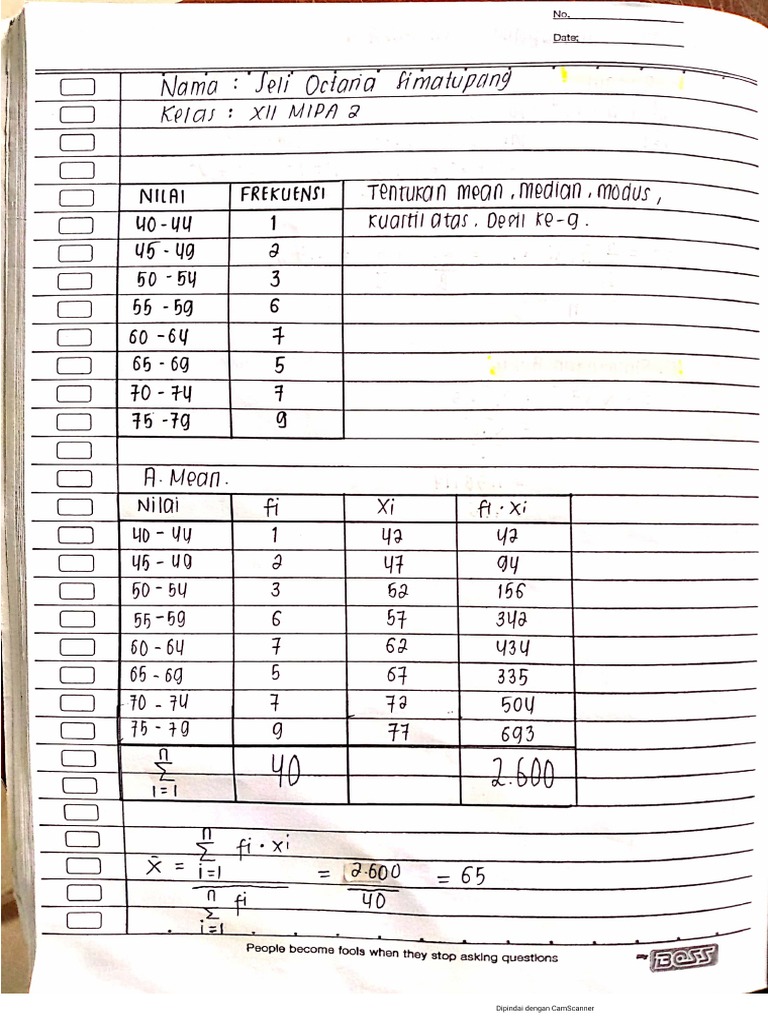 No.
Date:
Nama : Seli Octaria Simatupang
Kelas : XII MIPA 2
NILAI FREKUENSI Tentukan mean, median, modus,
40-44 1 kuartil atas, Desil ke-9.
45-49 2
50-54 3
55-59 6
60-64 7
65-69 5
70-74 7
75-79 9
A. Mean.
Nilai fi Xi fi . Xi
40-44 1 42 42
45-49 2 47 94
50-54 3 52 156
55-59 6 57 342
60-64 7 62 434
65-69 5 67 335
70-74 7 72 504
75-79 9 77 693
n ∑ i=1 40 2.600
x̄ = n ∑ i=1 fi . xi / n ∑ i=1 fi = 2.600 / 40 = 65
People become fools when they stop asking questions
BOSS
Dipindai dengan CamScanner